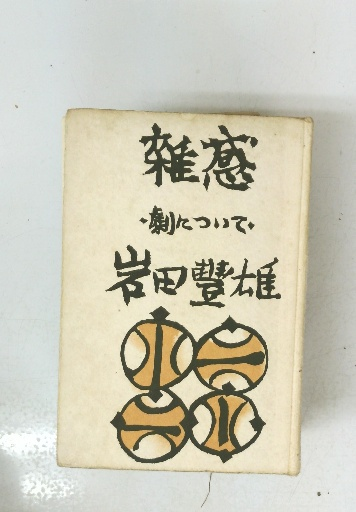 雑感
・劇について・
岩田豐雄